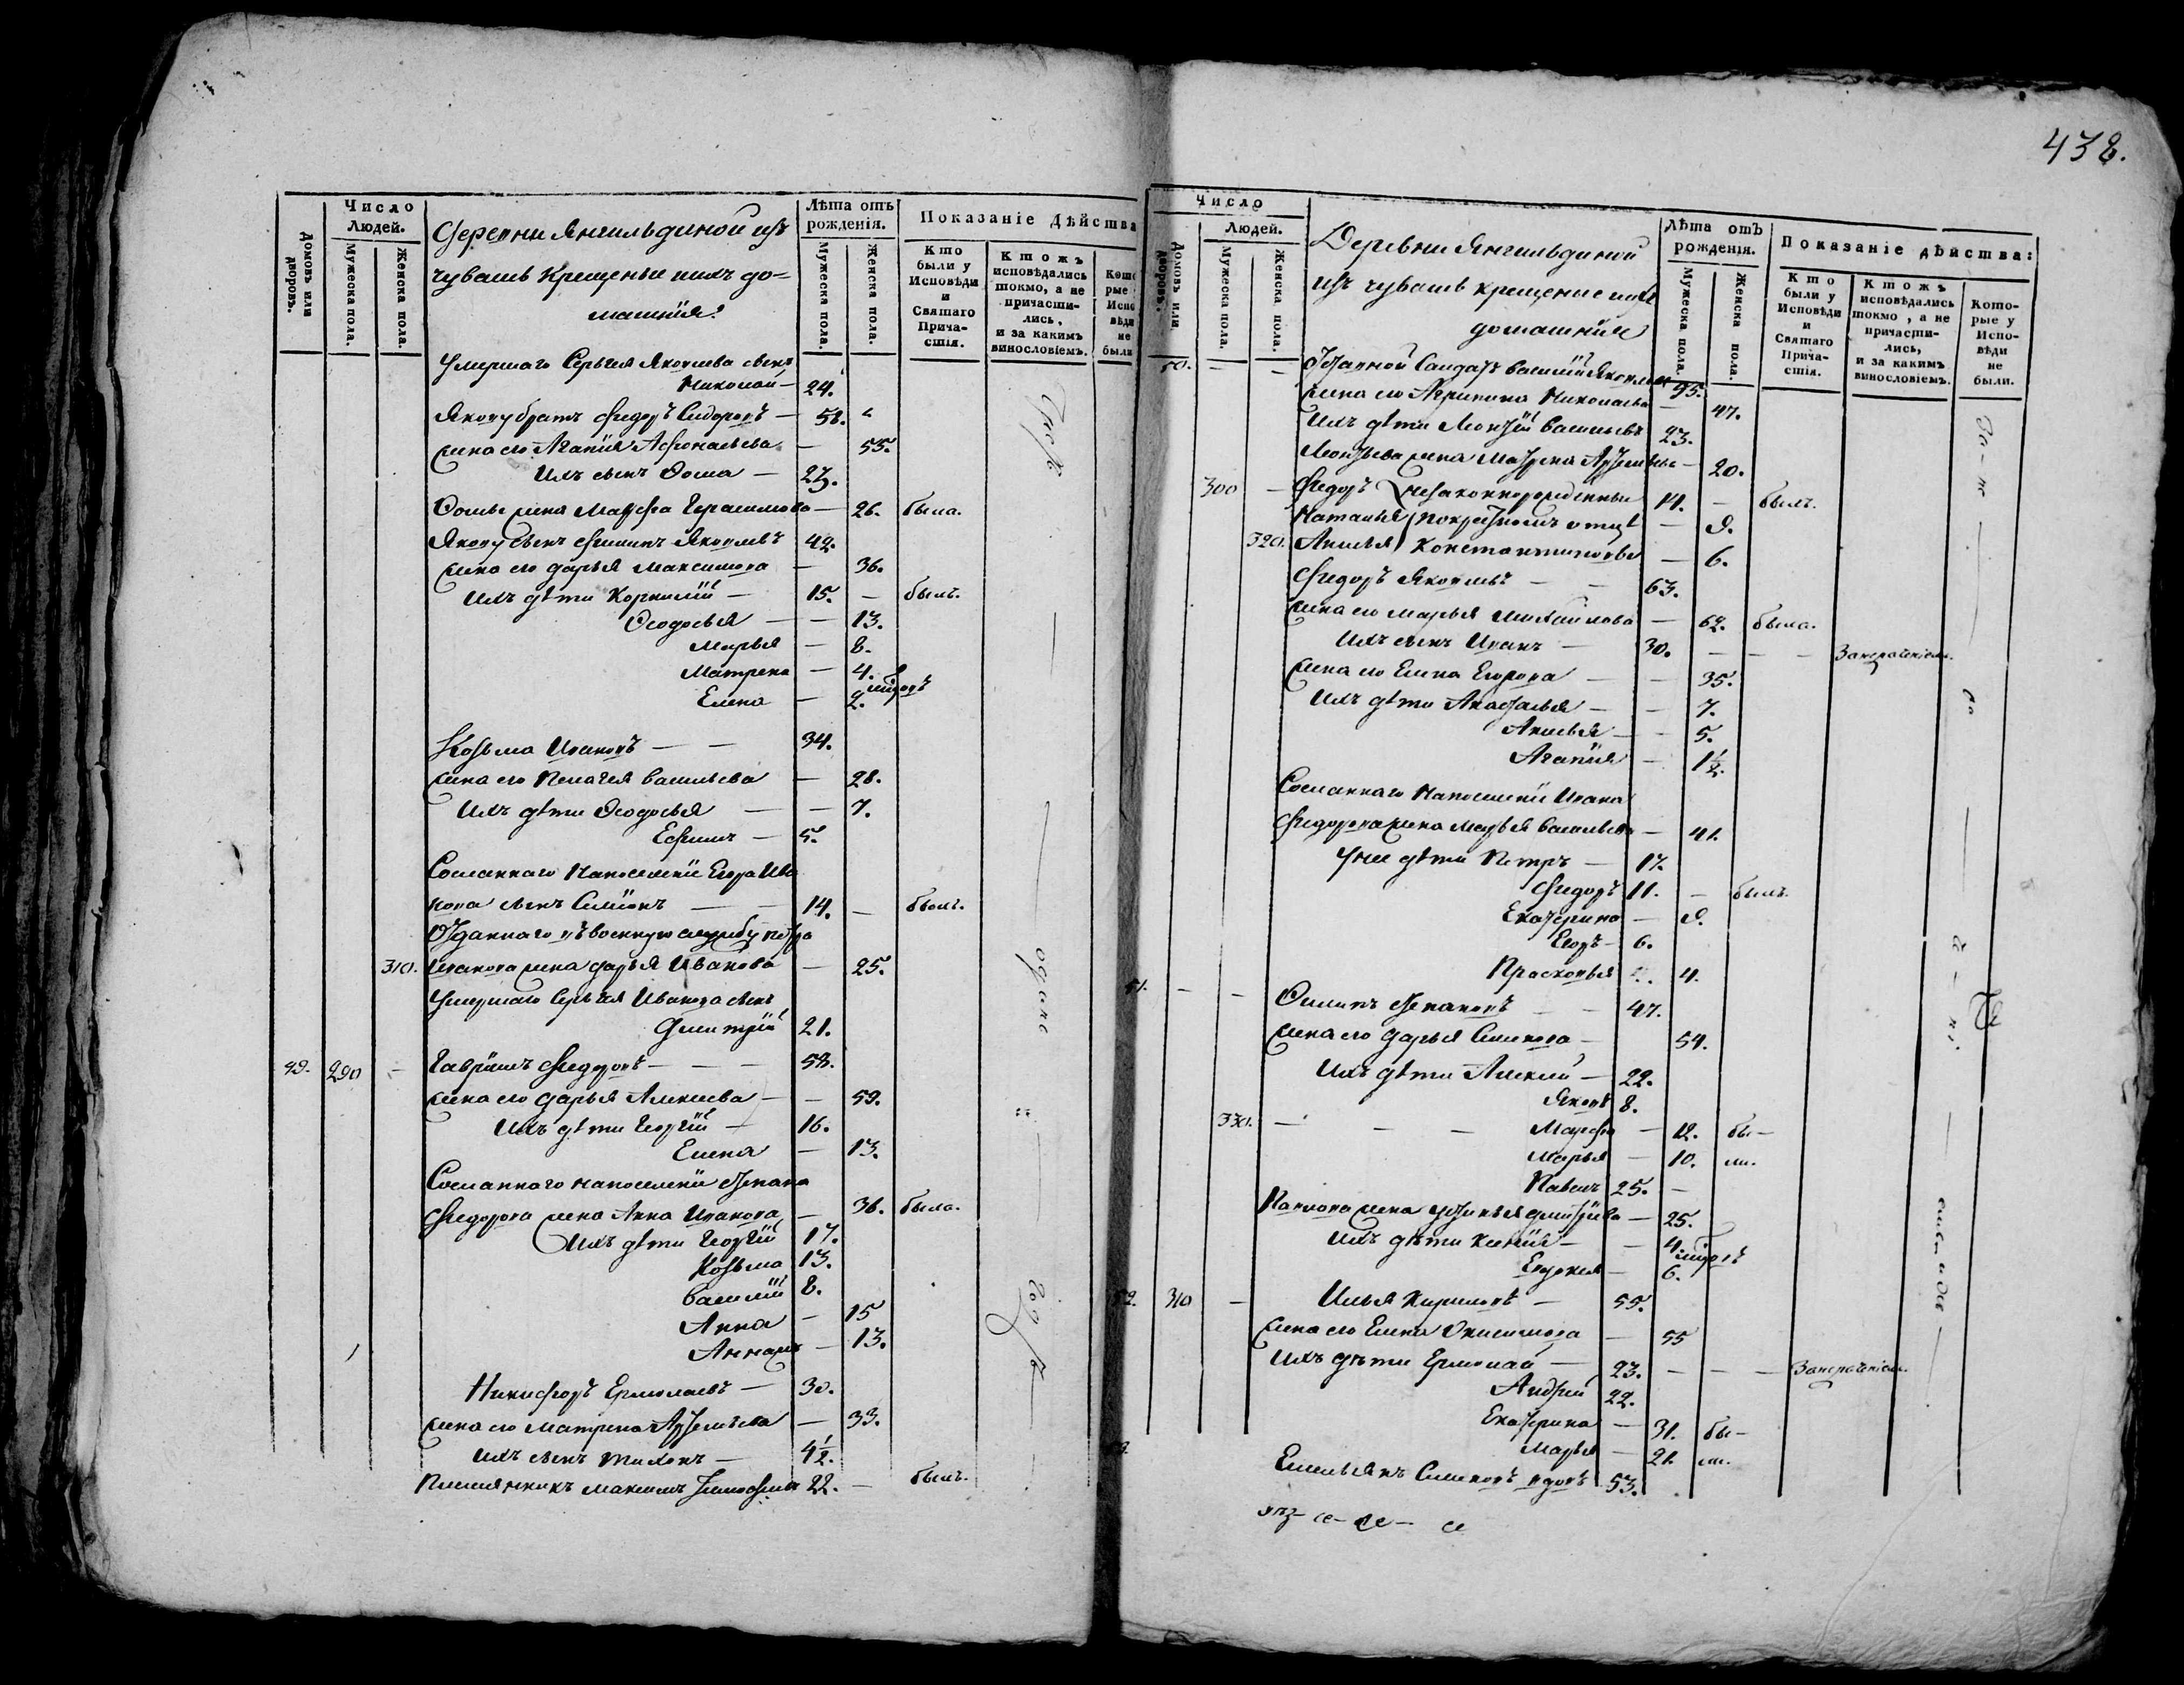 438.
Число
Людей.
Домовъ или дворовъ.
Мужеска пола.
Женска пола.
Деревни Янгильдиной изъ
чувашъ крещеные и ихъ до-
машнія:
Лѣта отъ
рожденія.
Мужеска пола.
Женска пола.
Показаніе Дѣйства
Кто были у Исповѣди и Святаго Прича-стія.
Ктожъ исповѣдались токмо, а не причасти-лись, и за какимъ винословіемъ.
Умершаго Сергѣя Яковлева сынъ
Николай — 24.
Якову братъ Федоръ Сидоровъ — 58.
жена его Агапія Афонасьева — 55.
Ихъ сынъ Фома — 23.
Фомы жена Марфа Герасимова — 26. была.
Якову сынъ Филипъ Яковлевъ 42.
жена его Дарья Максимова — 36.
Ихъ дѣти Корнилій — 15. — былъ.
Феодосья — — 13.
Марья — 8.
Матрена — 4.
Елена — 2.
Козьма Ивановъ — — 34.
жена его Пелагея Васильева — 28.
Ихъ дѣти Феодосья — — 7.
Ефимъ — 5.
Сосланнаго на поселеніи Егора Ива
нова сынъ Симіонъ — — 14. — былъ.
Отданнаго въ военную службу Петра
310. Иванова жена Дарья Иванова — 25.
Умершаго Сергѣя Иванова сынъ
Дмитрій 21.
49. 290 — Гавріилъ Федоровъ — — — 58.
жена его Дарья Алексеева — — 59.
Ихъ дѣти Георгій — 16.
Елена — 13.
Сосланнаго на поселеніи Степана
Федорова жена Анна Иванова — 36. была.
Ихъ дѣти Георгій 17.
Козьма 13.
Василій 8.
Анна — 15
— 13.
Никифоръ Ермолаевъ — 30.
жена его Матрена Артемьева — 33.
Ихъ сынъ Тихонъ — 4 1/2.
Племянникъ Максимъ 22. — былъ.
Число
Людей.
Домовъ или дворовъ.
Мужеска пола.
Женска пола.
Деревни Янгильдиной
изъ чувашъ крещеные и ихъ
домашнія
Лѣта отъ
рожденія.
Мужеска пола.
Женска пола.
Показаніе дѣйства:
Кто были у Исповѣди и Святаго Прича-стія.
Ктожъ исповѣдались токмо, а не причасти-лись, и за какимъ винословіемъ.
Кото-рые у Испо-вѣди не были.
50. — — Отставной Солдатъ Василій Яковлевъ 55.
жена его Агрипина Николаева — 47.
Ихъ дѣти Леонтій Васильевъ 23.
Леонтьева жена Матрена Артемьева — 20.
300 — Федоръ незаконнорожденные 14. — былъ.
Наталья по крестномъ отцѣ — 9.
320. Анисья Константиновы — 6.
Федоръ Яковлевъ — — 63.
жена его Марья Михайлова — 62. была.
Ихъ сынъ Иванъ — 30. — — —
жена его Елена Егорова — — 35.
Ихъ дѣти — — 7.
Анисья — — 5.
Агапія — 1 1/2.
Сосланнаго на поселеніи Ивана
Федорова жена Марья Васильева — 41.
У нее дѣти Петръ — 17.
Федоръ 11. — былъ.
Екатерина — 9.
Егоръ — 6.
Прасковья 4.
51. — — Филипъ Степановъ — — 47.
жена его Дарья Семенова — 54.
Ихъ дѣти Алексей — 22.
Яковъ 8.
330. — — — Марфа — 12. бы-
Марья — 10. ли.
Павелъ 25. —
Павлова жена Устинья Дмитріева — 25.
Ихъ дѣти Ксенія — — 4.
Евдокея — 6.
52. 310 — Илья Кириловъ — 55.
жена его Елена Онисимова — 55
Ихъ дѣти Ермолай — 23. — — —
Андрей 22.
Екатерина — 31. бы-
Марья — 21. ли.
Емельянъ Симеоновъ вдовъ 53.